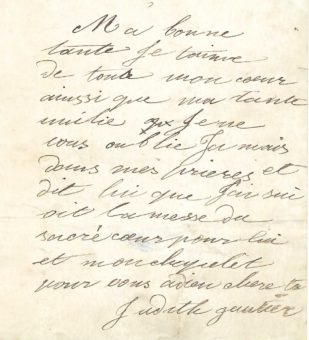 Ma bonne
tante Je taime
de tout mon cœur
ainsi que ma tante
milie Je ne
vous oublie Jamais
dans mes prieres et
dit lui que J'ai sui
vit la messe du
sacré cœur pour lui
et mon chapelet
pour vous adieu chere ta
Judith gautier